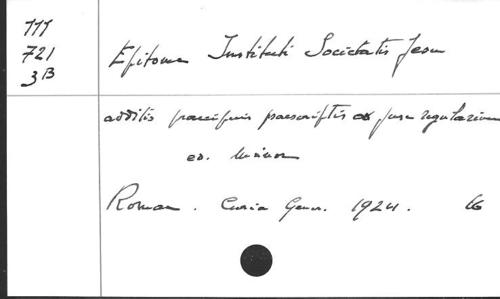 777
721
3B
Epitome Instituti Societatis Jesu
additis praecipuis praescriptis ex jure regularium
ed. minor
Romae. Curia Gener. 1924. 16